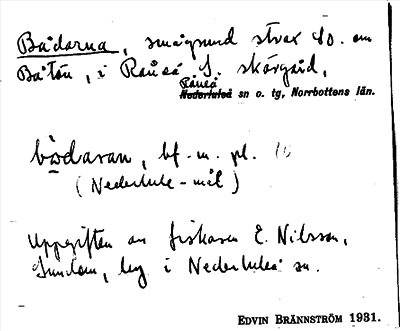 Bådarna, smågrund strax SO. om
Båtön, i Råneå S. skärgård,
Råneå
Nederluleå sn o. tg, Norrbottens län.
bådaran, bf. m. pl.
(Nederlule-mål)
Uppgiften av fiskaren E. Nilsson,
i Nederluleå sn.
EDVIN BRÄNNSTRÖM 1931.